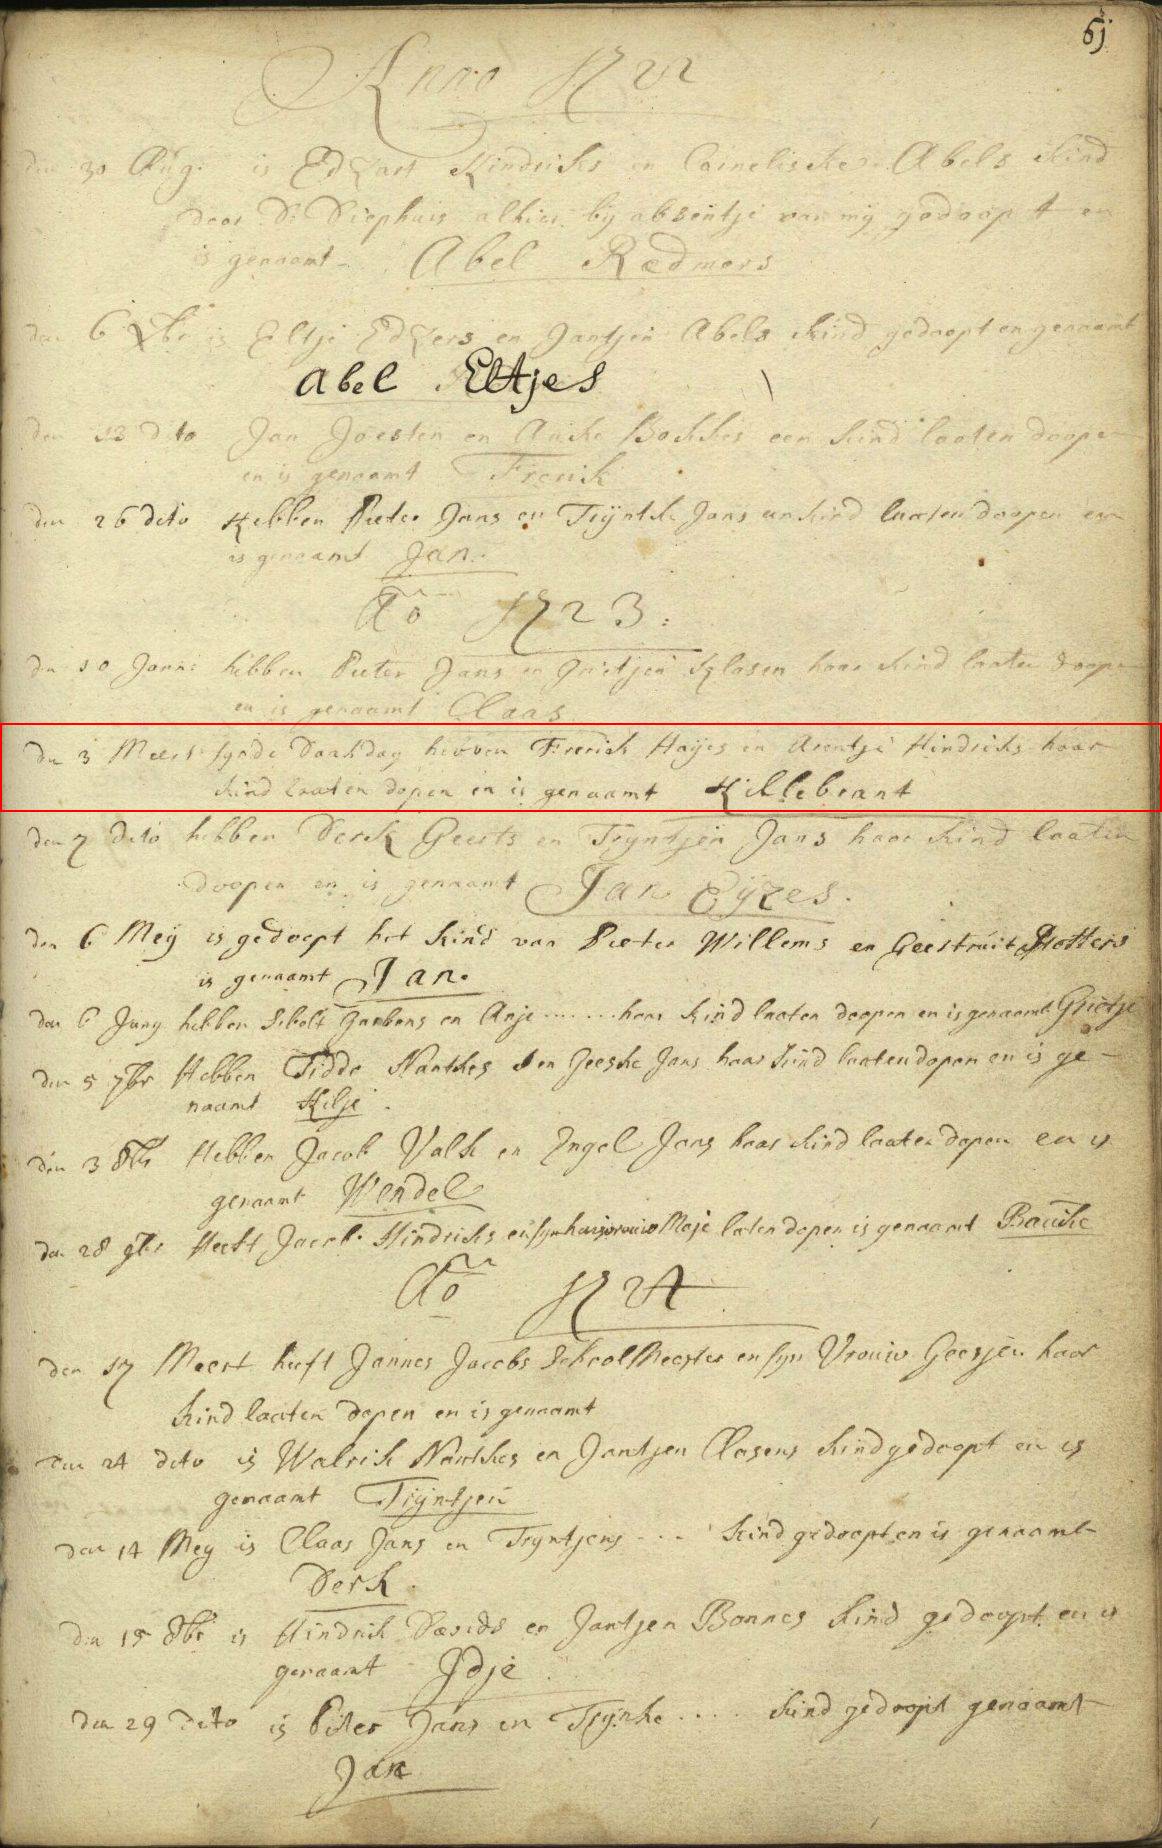 61
Anno 1722
den 30 Aug. is Edzart Hindriks en Corneliske Abels kind
door Ds Diephuis alhier bij absentji van mij gedoopt en
is genaamt Abel Redmers
den 6 7br is Eltje Edzers en Jantjen Abels kind gedoopt en genaamt
Abel Eltjes
den 13 dito Jan Joesten en Anke Bokkes een kind laaten doopen
en is genaamt Frerik
den 26 dito Hebben Pieter Jans en Trijntie Jans een kind laaten doopen en
is genaamt Jan.
Ao 1723:
den 10 Janu: hebben Pieter Jans en Grietjen Klasen haar kind laaten doopen
en is genaamt Claas
den 3 Meert synde Dankdag hebben Frerick Hayes en Arentje Hindriks haar
kind laaten dopen en is genaamt Hillebrant
den 7 dito hebben Derk Geerts en Tryntjen Jans haar kind laaten
doopen en is genaamt Jan Eyzes.
den 6 Meij is gedoopt het kind van Pieter Willems en Geestruit
is genaamt Jan.
den 6 Juny hebben Sibolt Garbens en Anje ........ haar kind laaten doopen en is genaamt Grietje
den 5 7br Hebben Tidde Nantkes en Geeske Jans haar kind laaten dopen en is ge-
naamt Hilje.
den 3 8br Hebben Jacob Valk en Engel Jans haar kind laaten dopen en is
genaamt Wendel
den 28 9br Heeft Jacob Hindriks en syn huisvrouw Maje laten dopen is genaamt Bauke
Ao 1724
den 17 Meert heeft Jannes Jacobs School Meester en syn Vrouw Geesjen haar
kind laaten dopen en is genaamt
den 24 dito is Walrik Nantkes en Jantjen Clasens kind gedoopt en is
genaamt Trijntjen
den 14 Mey is Claas Jans en Tryntjens .... kind gedoopt en is genaamt
Derk.
den 15 8br is Hindrik Davids en Jantjen Bonnes kind gedoopt en is
genaamt Idje
den 29 dito is Piter Jans en Trynke .... kind gedoopt genaamt
Jan